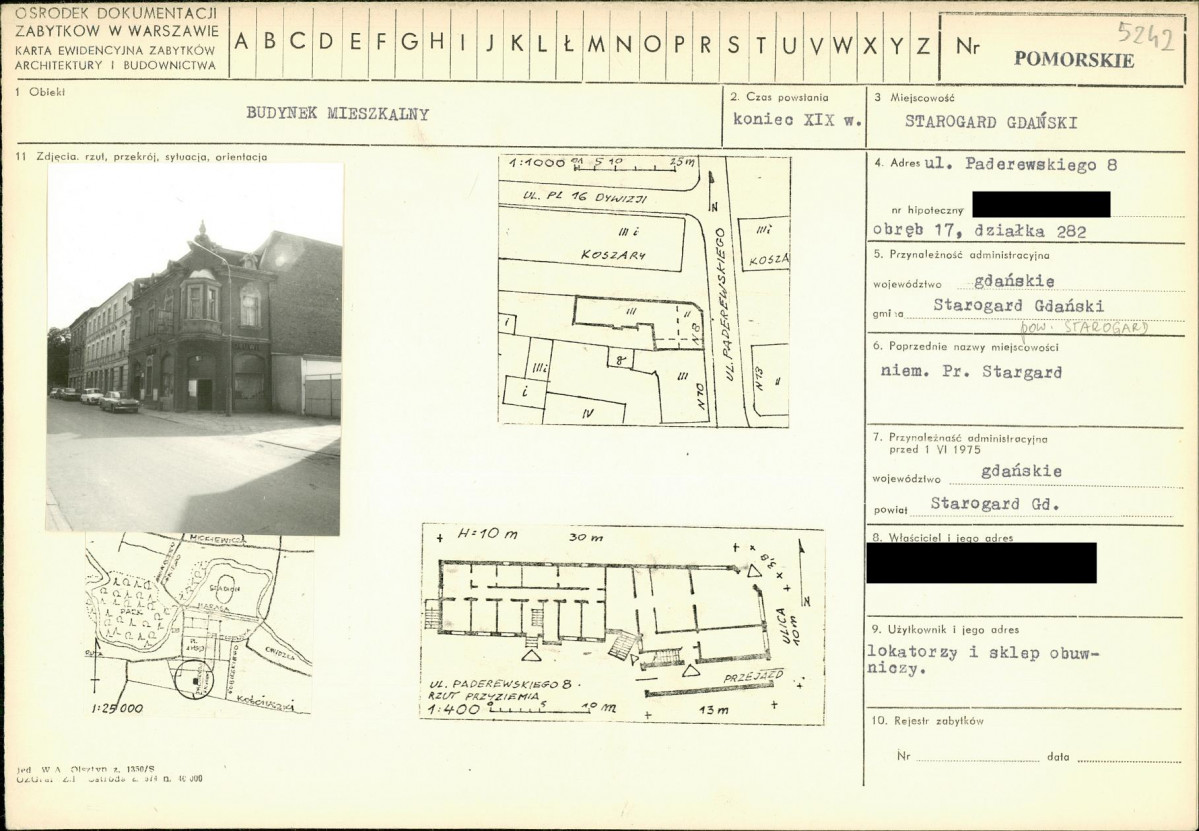 OŚRODEK DOKUMENTACJI
ZABYTKÓW W WARSZAWIE
KARTA EWIDENCYJNA ZABYTKÓW
ARCHITEKTURY I BUDOWNICTWA
A B C D E F G H I J K L Ł M N O P R S T U V W X Y Z
Nr
5242
POMORSKIE
1 Obiekt
BUDYNEK MIESZKALNY
2. Czas powstania
koniec XIX w.
3 Miejscowość
STAROGARD GDAŃSKI
11 Zdjęcia. rzut, przekrój, sytuacja, orientacja
1:1000 0M 5 10 25m
UL. PL 16 DYWIZJI
N
III i
KOSZARY
III i
KOSZA
UL. PADEREWSKIEGO
III
II
N8
i
III i
g
i
IV
III
N10
N13
II
4. Adres ul. Paderewskiego 8
nr hipoteczny
obręb 17, działka 282
5. Przynależność administracyjna
województwo gdańskie
gmina Starogard Gdański
pow. STAROGARD
6. Poprzednie nazwy miejscowości
niem. Pr. Stargard
7. Przynależność administracyjna
przed 1 VI 1975
województwo gdańskie
powiat Starogard Gd.
8. Właściciel i jego adres
9. Użytkownik i jego adres
lokatorzy i sklep obuw-
niczy.
10. Rejestr zabytków
Nr
data
MICKIEWICZA
STADION
PARK
Kościuszki
1:25 000
H=10 m
30 m
3,8
N
ULICA
10 m
PRZEJAZD
13 m
UL. PADEREWSKIEGO 8
RZUT PRZYZIEMIA
1:400 0 5 10 m
W.A. Olsztyn z. 1350/S